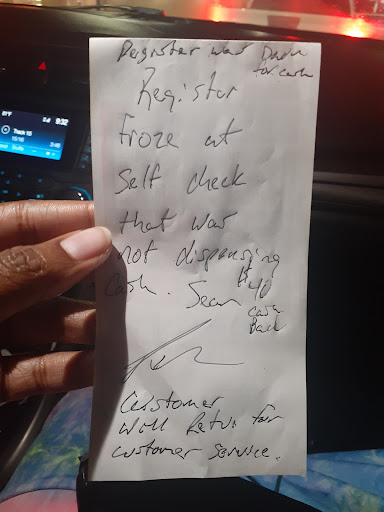 Register was Down
for cash
Register
froze at
self check
that was
not dispensing
cash. Sean $40
cash
Back
Customer
will Retur for
customer service.
81°F 9:32
Track 15